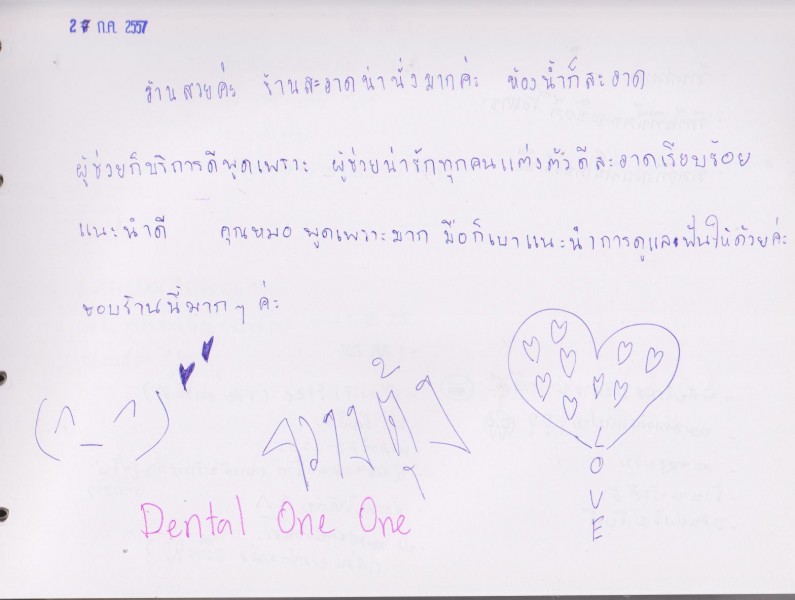 27 ก.ค. 2557
ร้านสวยค่ะ ร้านสะอาดน่านั่งมากค่ะ ห้องน้ำก็สะอาด
ผู้ช่วยก็บริการดีพูดเพราะ ผู้ช่วยน่ารักทุกคนแต่งตัวดีสะอาดเรียบร้อย
แนะนำดี คุณหมอพูดเพราะมาก มือก็เบาแนะนำการดูแลฟันให้ด้วยค่ะ
ชอบร้านนี้มากๆ ค่ะ
(^_^)
LOVE
Dental One One